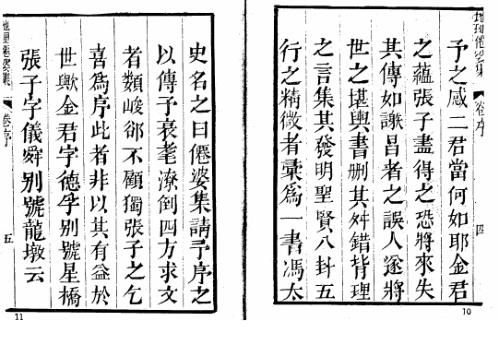 地理僊婆集 卷序 四
予之感二君當何如耶金君
之蘊張子盡得之恐將來失
其傳如謝昌者之誤人遂將
世之堪輿書刪其舛錯背理
之言集其發明聖賢八卦五
行之精微者彙爲一書馮太
10
史名之曰僊婆集請予序之
以傳予衰耄潦倒四方求文
者類峻郤不顧獨張子之乞
喜爲序此者非以其有益於
世歟金君字德孚别號星橋
張子字儀舜别號龍墩云
地理僊婆集 卷序 五
11